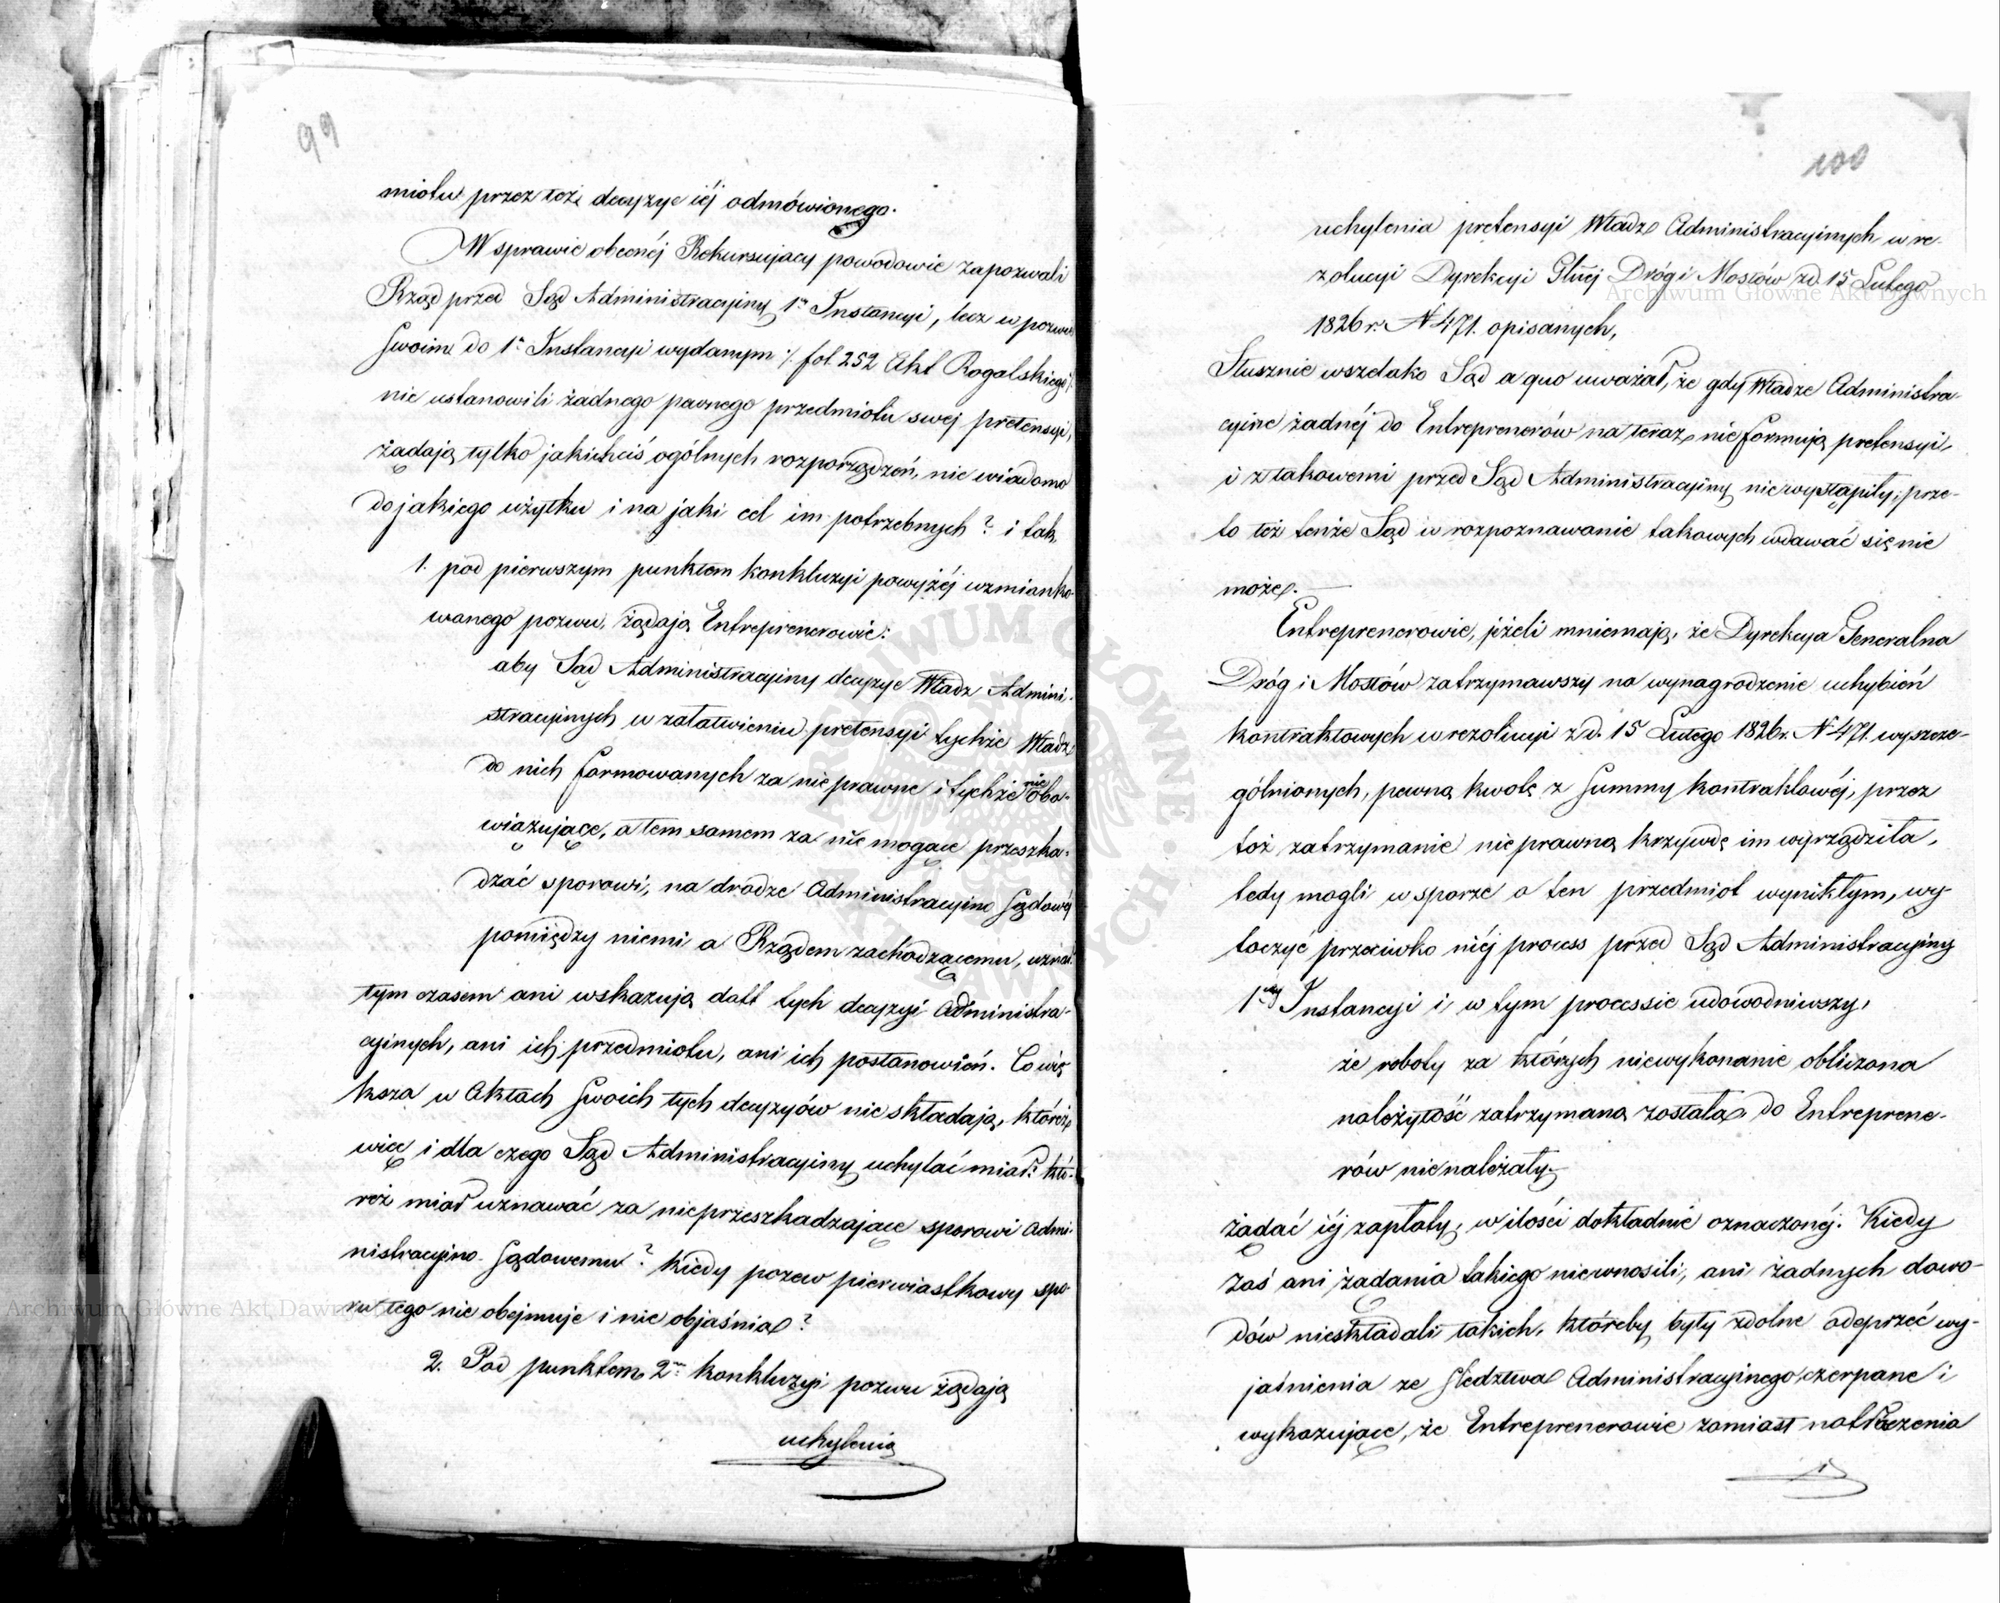 99
miotu przez też decyzye iéj odmówionego.
W sprawie obecnéj Rekursujący powodowie zapozwali
Rząd przed Sąd Administracyiny 1ej Instancyi, lecz w pozwie
Swoim do 1ej Instancyi wydanym :/. fol. 252 Akt Rogalskiego /:
nie ustanowili żadnego pewnego przedmiotu swej pretensyi,
żądają tylko jakichciś ogólnych rozporządzeń, nie wiadomo
do jakiego użytku i na jaki cel im potrzebnych? i tak
1. pod pierwszym punktem konkluzyi powyżéj wzmianko
wanego pozwu, żądają Entreprenerowie:
aby Sąd Administracyiny decyzye Władz Admini-
stracyinych w załatwieniu pretensyi tychże Władz
do nich formowanych za nieprawne i tychże nie obo-
wiązujące, a tem samem za nie mogące przeszka-
dzać sporowi, na drodze Administracyino Sądowéj
pomiędzy niemi a Rządem zachodzącemu, uznał.
tym czasem ani wskazują datt tych decyzyi Administra-
cyinych, ani ich przedmiotu, ani ich postanowień. Co wię
ksza w Aktach Swoich tych decyzyów nie składają, któreż
więc i dla czego Sąd Administracyiny uchylać miał? któ-
reż miał uznawać za nieprzeszkadzające sporowi Admi-
nistracyino-Sądowemu? Kiedy pozew pierwiastkowy spo
ru tego nie obejmuje i nie objaśnia?
2. Pod punktem 2m konkluzyi pozwu żądają
uchylenia
100
uchylenia pretensyi Władz Administracyinych w re-
zolucyi Dyrekcyi Głnéj Dróg i Mostów z d. 15 Lutego
1826 r. N 471. opisanych,
Słusznie wszelako Sąd a quo uważał, że gdy Władze Administra-
cyine żadnéj do Entreprenerów na teraz nie formują pretensyi,
i z takowemi przed Sąd Administracyiny nie wystąpiły; prze-
to też tenże Sąd w rozpoznawanie takowych wdawać się nie
może.
Entreprenerowie, jeżeli mniemają, że Dyrekcya Generalna
Dróg i Mostów zatrzymawszy na wynagrodzenie uchybień
kontraktowych w rezolucyi z d. 15 Lutego 1826 r. N 471. wyszcze-
gólnionych, pewną kwotę z Summy kontraktowéj, przez
toż zatrzymanie nieprawną krzywdę im wyrządziła,
tedy mogli w sporze o ten przedmiot wynikłym, wy-
toczyć przeciwko niéj process przed Sąd Administracyiny
1ey Instancyi i, w tym processie udowodniwszy,
że roboty za których niewykonanie obliczona
należytość zatrzymaną została, do Entreprene-
rów nienależały,
żądać iéj zapłaty, w ilości dokładnie oznaczonéj. Kiedy
zaś ani żądania takiego niewnosili, ani żadnych dowo-
dów nieskładali takich, któreby były zdolne odeprzeć wy-
jaśnienia ze śledztwa Administracyinego czerpane i
wykazujące, że Entreprenerowie zamiast natłoczenia
Archiwum Główne Akt Dawnych
Archiwum Główne Akt Dawnych
ARCHIWUM GŁÓWNE AKT DAWNYCH